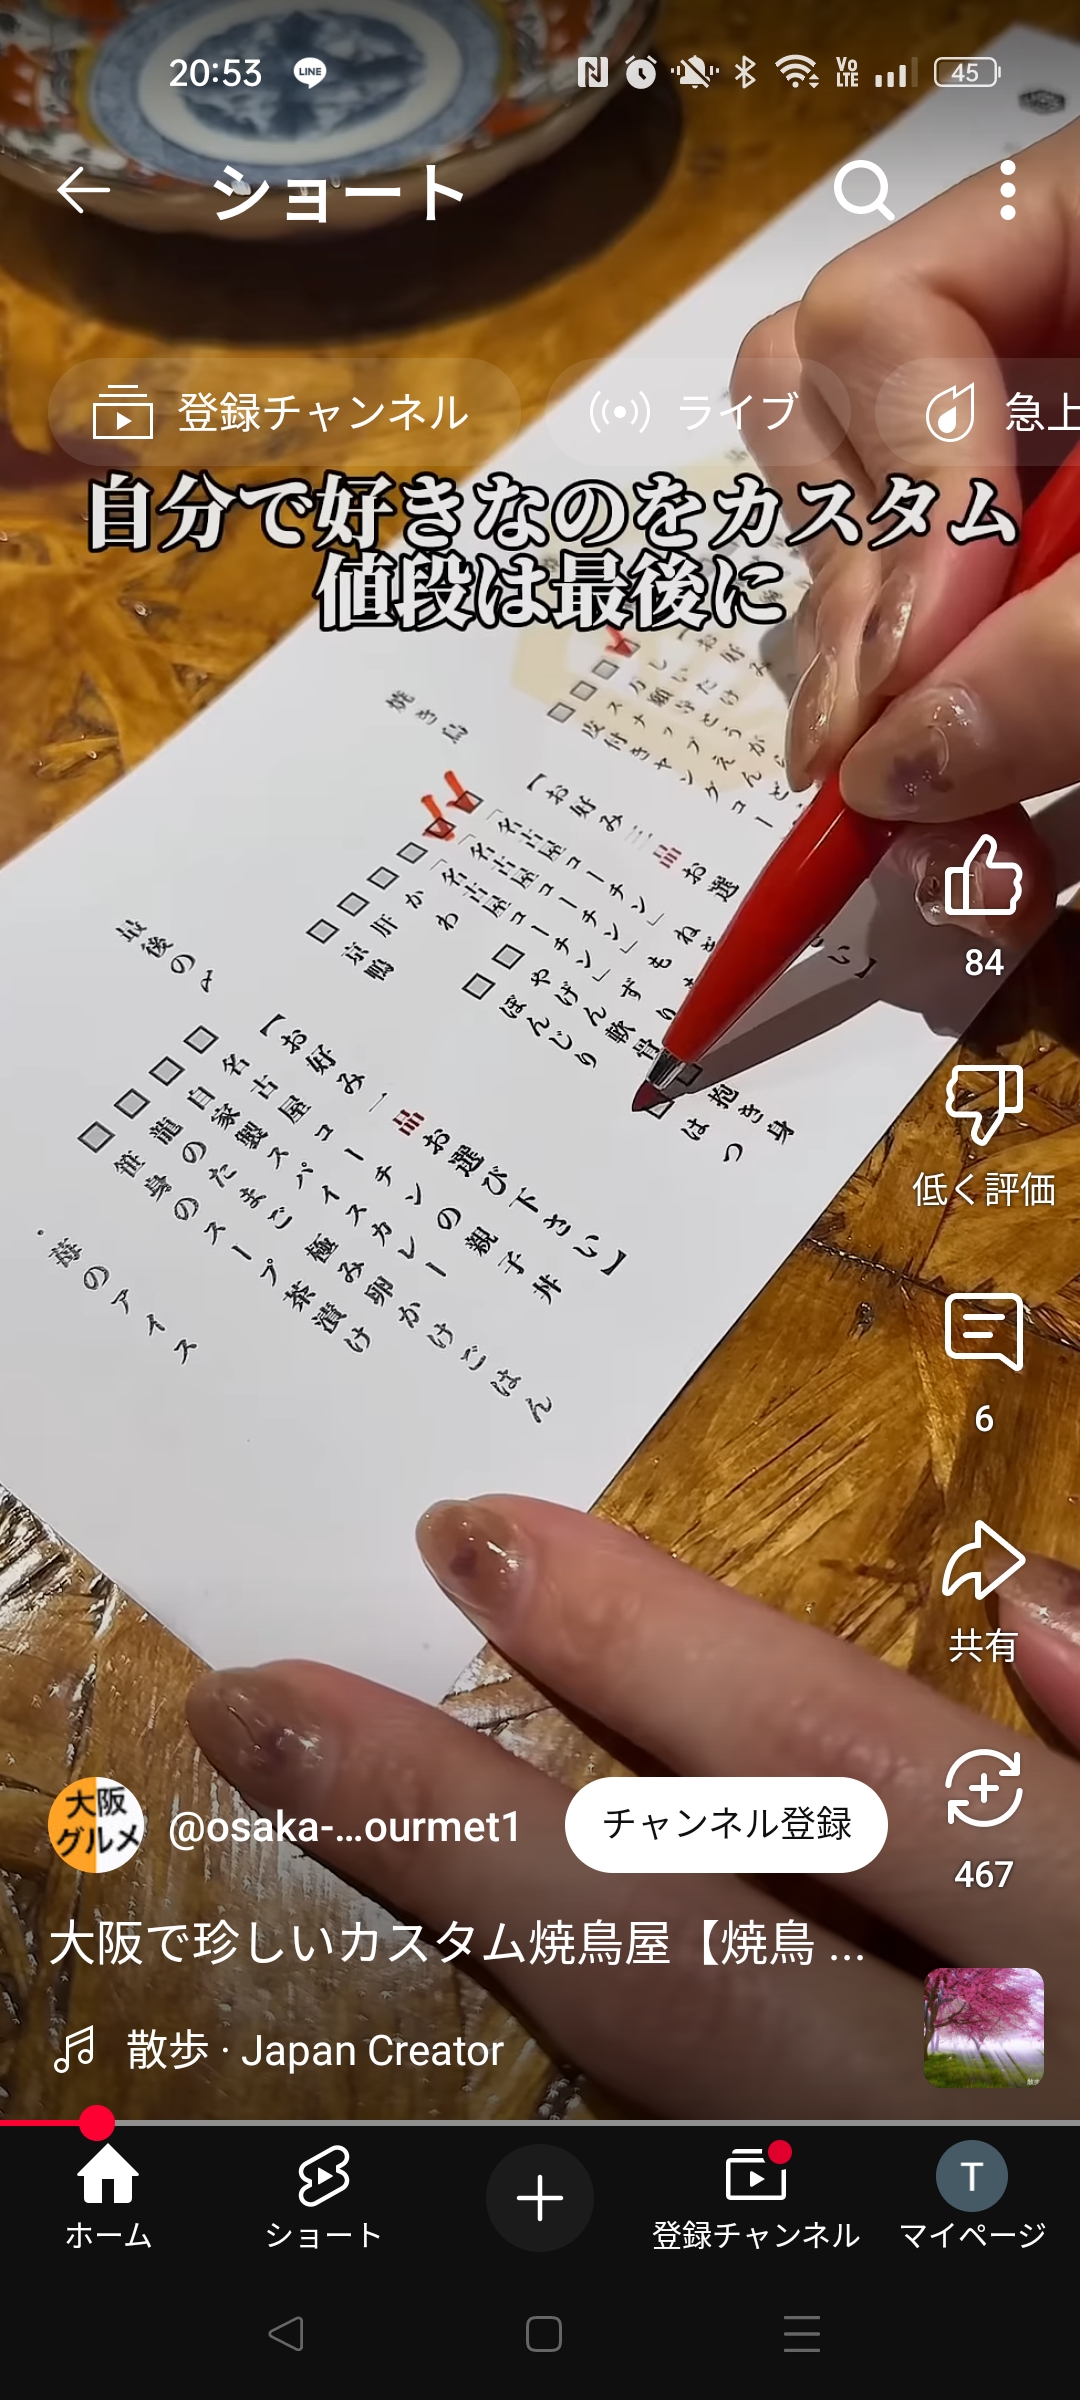 20:53
LINE
Vo
LTE
45
ショート
登録チャンネル
ライブ
急上
自分で好きなのをカスタム
値段は最後に
【お好み三品お選
「名古屋コーチン」ねぎ
「名古屋コーチン」もも
「名古屋コーチン」ずり
かわ
肝
京鴨
抱き身
はつ
やげん軟骨
ぼんじり
焼き鳥
最後の〆
【お好み一品お選び下さい】
名古屋コーチンの親子丼
自家製スパイスカレー
龍のたまご 極み卵かけごはん
笹身のスープ茶漬け
・苺のアイス
84
低く評価
6
共有
467
大阪
グルメ
@osaka-...ourmet1
チャンネル登録
大阪で珍しいカスタム焼鳥屋【焼鳥 ...
散歩 · Japan Creator
ホーム
ショート
登録チャンネル
T
マイページ